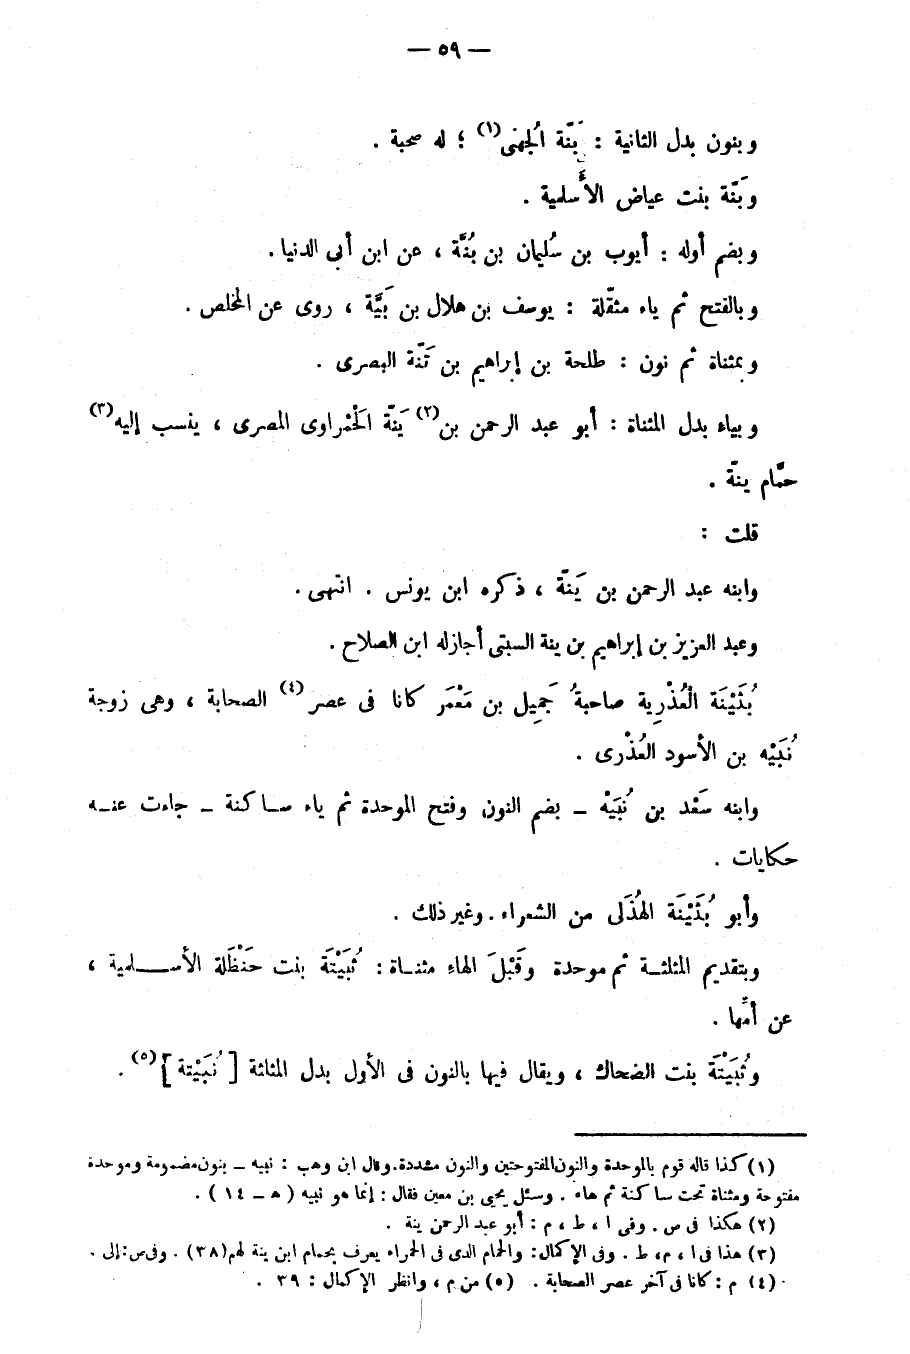 — ٥٩ —
وبنون بدل الثانية : بَنّة الجُهنى(١) ؛ له صحبة .
وبَنّة بنت عياض الأَسلمية .
وبضم أوله : أيوب بن سُليمان بن بُنَّة ، عن ابن أبى الدنيا .
وبالفتح ثم ياء مثقّلة : يوسف بن هلال بن بَيَّة ، روى عن المخلص .
وبمثناة ثم نون : طلحة بن إبراهيم بن تَنّة البصرى .
وبياء بدل المثناة : أبو عبد الرحمن بن(٢) يَنّة الحَمْراوى المصرى ، ينسب إليه(٣)
حمَّام ينّة .
قلت :
وابنه عبد الرحمن بن يَنّة ، ذكره ابن يونس . انتهى .
وعبد العزيز بن إبراهيم بن ينة السبتى أجاز له ابن الصلاح .
بُثَيْنَة العُذْرِية صاحبةُ جَمِيل بن مَعْمَر كانا فى عصر(٤) الصحابة ، وهى زوجة
نُبَيْه بن الأسود العُذْرى .
وابنه سَعْد بن نُبَيْه – بضم النون وفتح الموحدة ثم ياء ساكنة – جاءت عنه
حكايات .
وأبو بُثَيْنَة الهُذَلى من الشعراء . وغير ذلك .
وبتقديم المثلثة ثم موحدة وقَبْلَ الهاء مثناة : ثُبَيْتَة بنت حَنْظَلة الأسلمية ،
عن أمِّها .
وثُبَيْتَة بنت الضحاك ، ويقال فيها بالنون فى الأول بدل المثلثة [ نُبَيْتة ](٥) .
(١) كذا قاله قوم بالموحدة والنون المفتوحتين والنون مشددة . وقال ابن وهب : نبيه – بنون مضمومة وموحدة
مفتوحة ومثناة تحت ساكنة ثم هاء . وسئل يحيى بن معين فقال : إنما هو نبيه ( هـ – ١٤ ) .
(٢) هكذا فى س . وفى ا ، ط ، م : أبو عبد الرحمن ينة .
(٣) هذا فى ا ، م ، ط . وفى الإكمال : والحمام الذى فى الحمراء يعرف بحمام ابن ينة لهم (٣٨) . وفى س : إلى .
(٤) م : كانا فى آخر عصر الصحابة . (٥) من م ، وانظر الإكمال : ٣٩ .